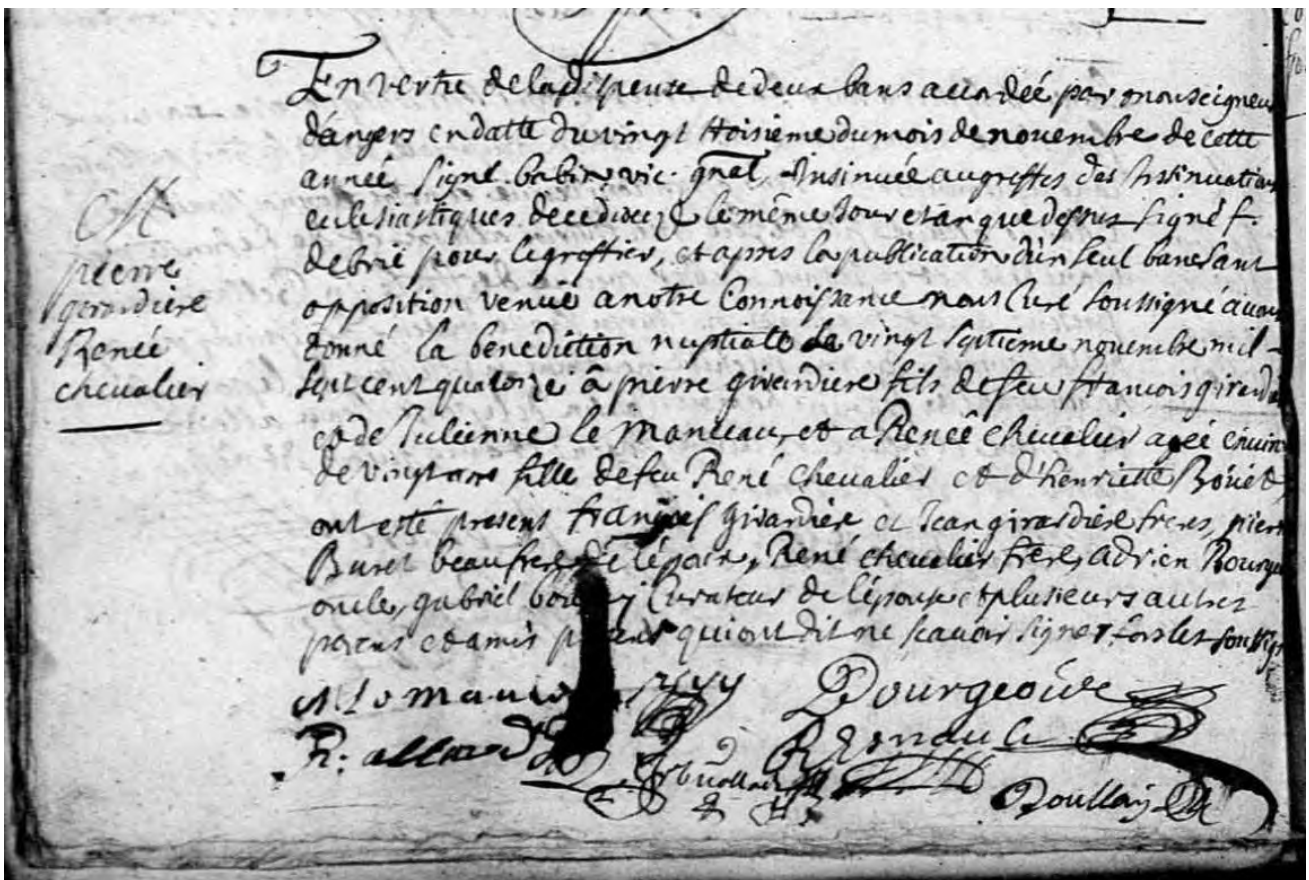 M
pierre
girardiere
Renée
chevalier
En vertu de la dispense de deux bans accordée par monseigneur
d'angers en datte du vingt troisieme du mois de novembre de cette
année signé babin vic. gnal, Insinuée au greffes des Insinuations
eclesiastiques de ce dioceze le même Jour et an que dessus signé f.
debrié pour le greffier, et apres la publication d'un seul banc sant
opposition venuë a notre Connoissance nous Curé soussigné avons
donné la benediction nuptialle le vingt septieme novembre mil
sept cent quatorze â pierre girardiere fils de feu francois girardie
et de Julienne le manceau, et a Reneê chevalier agée envir
de vingt ans fille de feu René chevalier et d'henriette Boüet
ont esté present françois girardiere et Jean girardiere freres, pierr
Buret beaufrere de lépoux, René chevalier frere, adrien Bourge
oncle, gabriel Curateur de l'épouse et plusieurs autres
parens et amis qui ont dit ne scavoir signer fors les soussig
Bourgeoise
R. allard Renault
Boullay